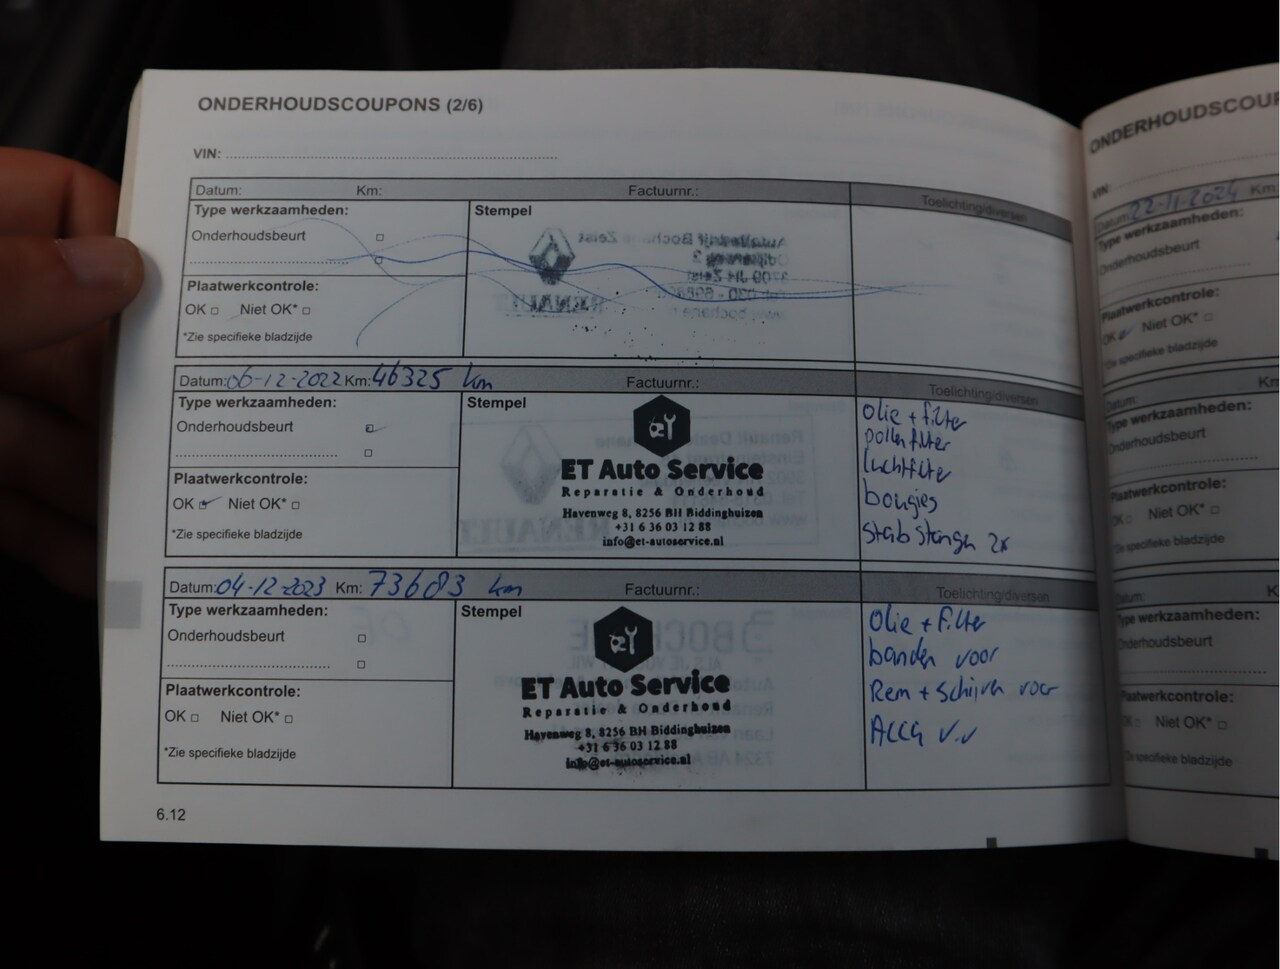 ONDERHOUDSCOUPONS (2/6)
VIN:
Datum: Km: Factuurnr.:
Toelichting/diversen
Type werkzaamheden:
Stempel
Onderhoudsbeurt
Plaatwerkcontrole:
OK □ Niet OK* □
*Zie specifieke bladzijde
RENAULT
Datum: 06-12-2022 Km: 46325 km Factuurnr.:
Toelichting/diversen
Type werkzaamheden:
Stempel
Onderhoudsbeurt
Plaatwerkcontrole:
OK Niet OK* □
*Zie specifieke bladzijde
ET Auto Service
Reparatie & Onderhoud
Havenweg 8, 8256 BH Biddinghuizen
+31 6 36 03 12 88
info@et-autoservice.nl
olie + filter
pollenfilter
luchtfilter
bougies
stabstangen 2x
Datum: 04-12-2023 Km: 73683 km Factuurnr.:
Toelichting/diversen
Type werkzaamheden:
Stempel
Onderhoudsbeurt □
Plaatwerkcontrole:
OK □ Niet OK* □
*Zie specifieke bladzijde
ET Auto Service
Reparatie & Onderhoud
Havenweg 8, 8256 BH Biddinghuizen
+31 6 36 03 12 88
info@et-autoservice.nl
Olie + Filter
banden voor
Rem + schijven voor
ACCU v.v
6.12
ONDERHOUDSCOUP
VIN:
Datum: 22-11-2024 Km:
Type werkzaamheden:
Onderhoudsbeurt
Plaatwerkcontrole:
OK Niet OK* □
*Zie specifieke bladzijde
Datum: Km
Type werkzaamheden:
Onderhoudsbeurt
Plaatwerkcontrole:
OK □ Niet OK* □
*Zie specifieke bladzijde
Datum: K
Type werkzaamheden:
Onderhoudsbeurt
Plaatwerkcontrole:
OK □ Niet OK* □
*Zie specifieke bladzijde